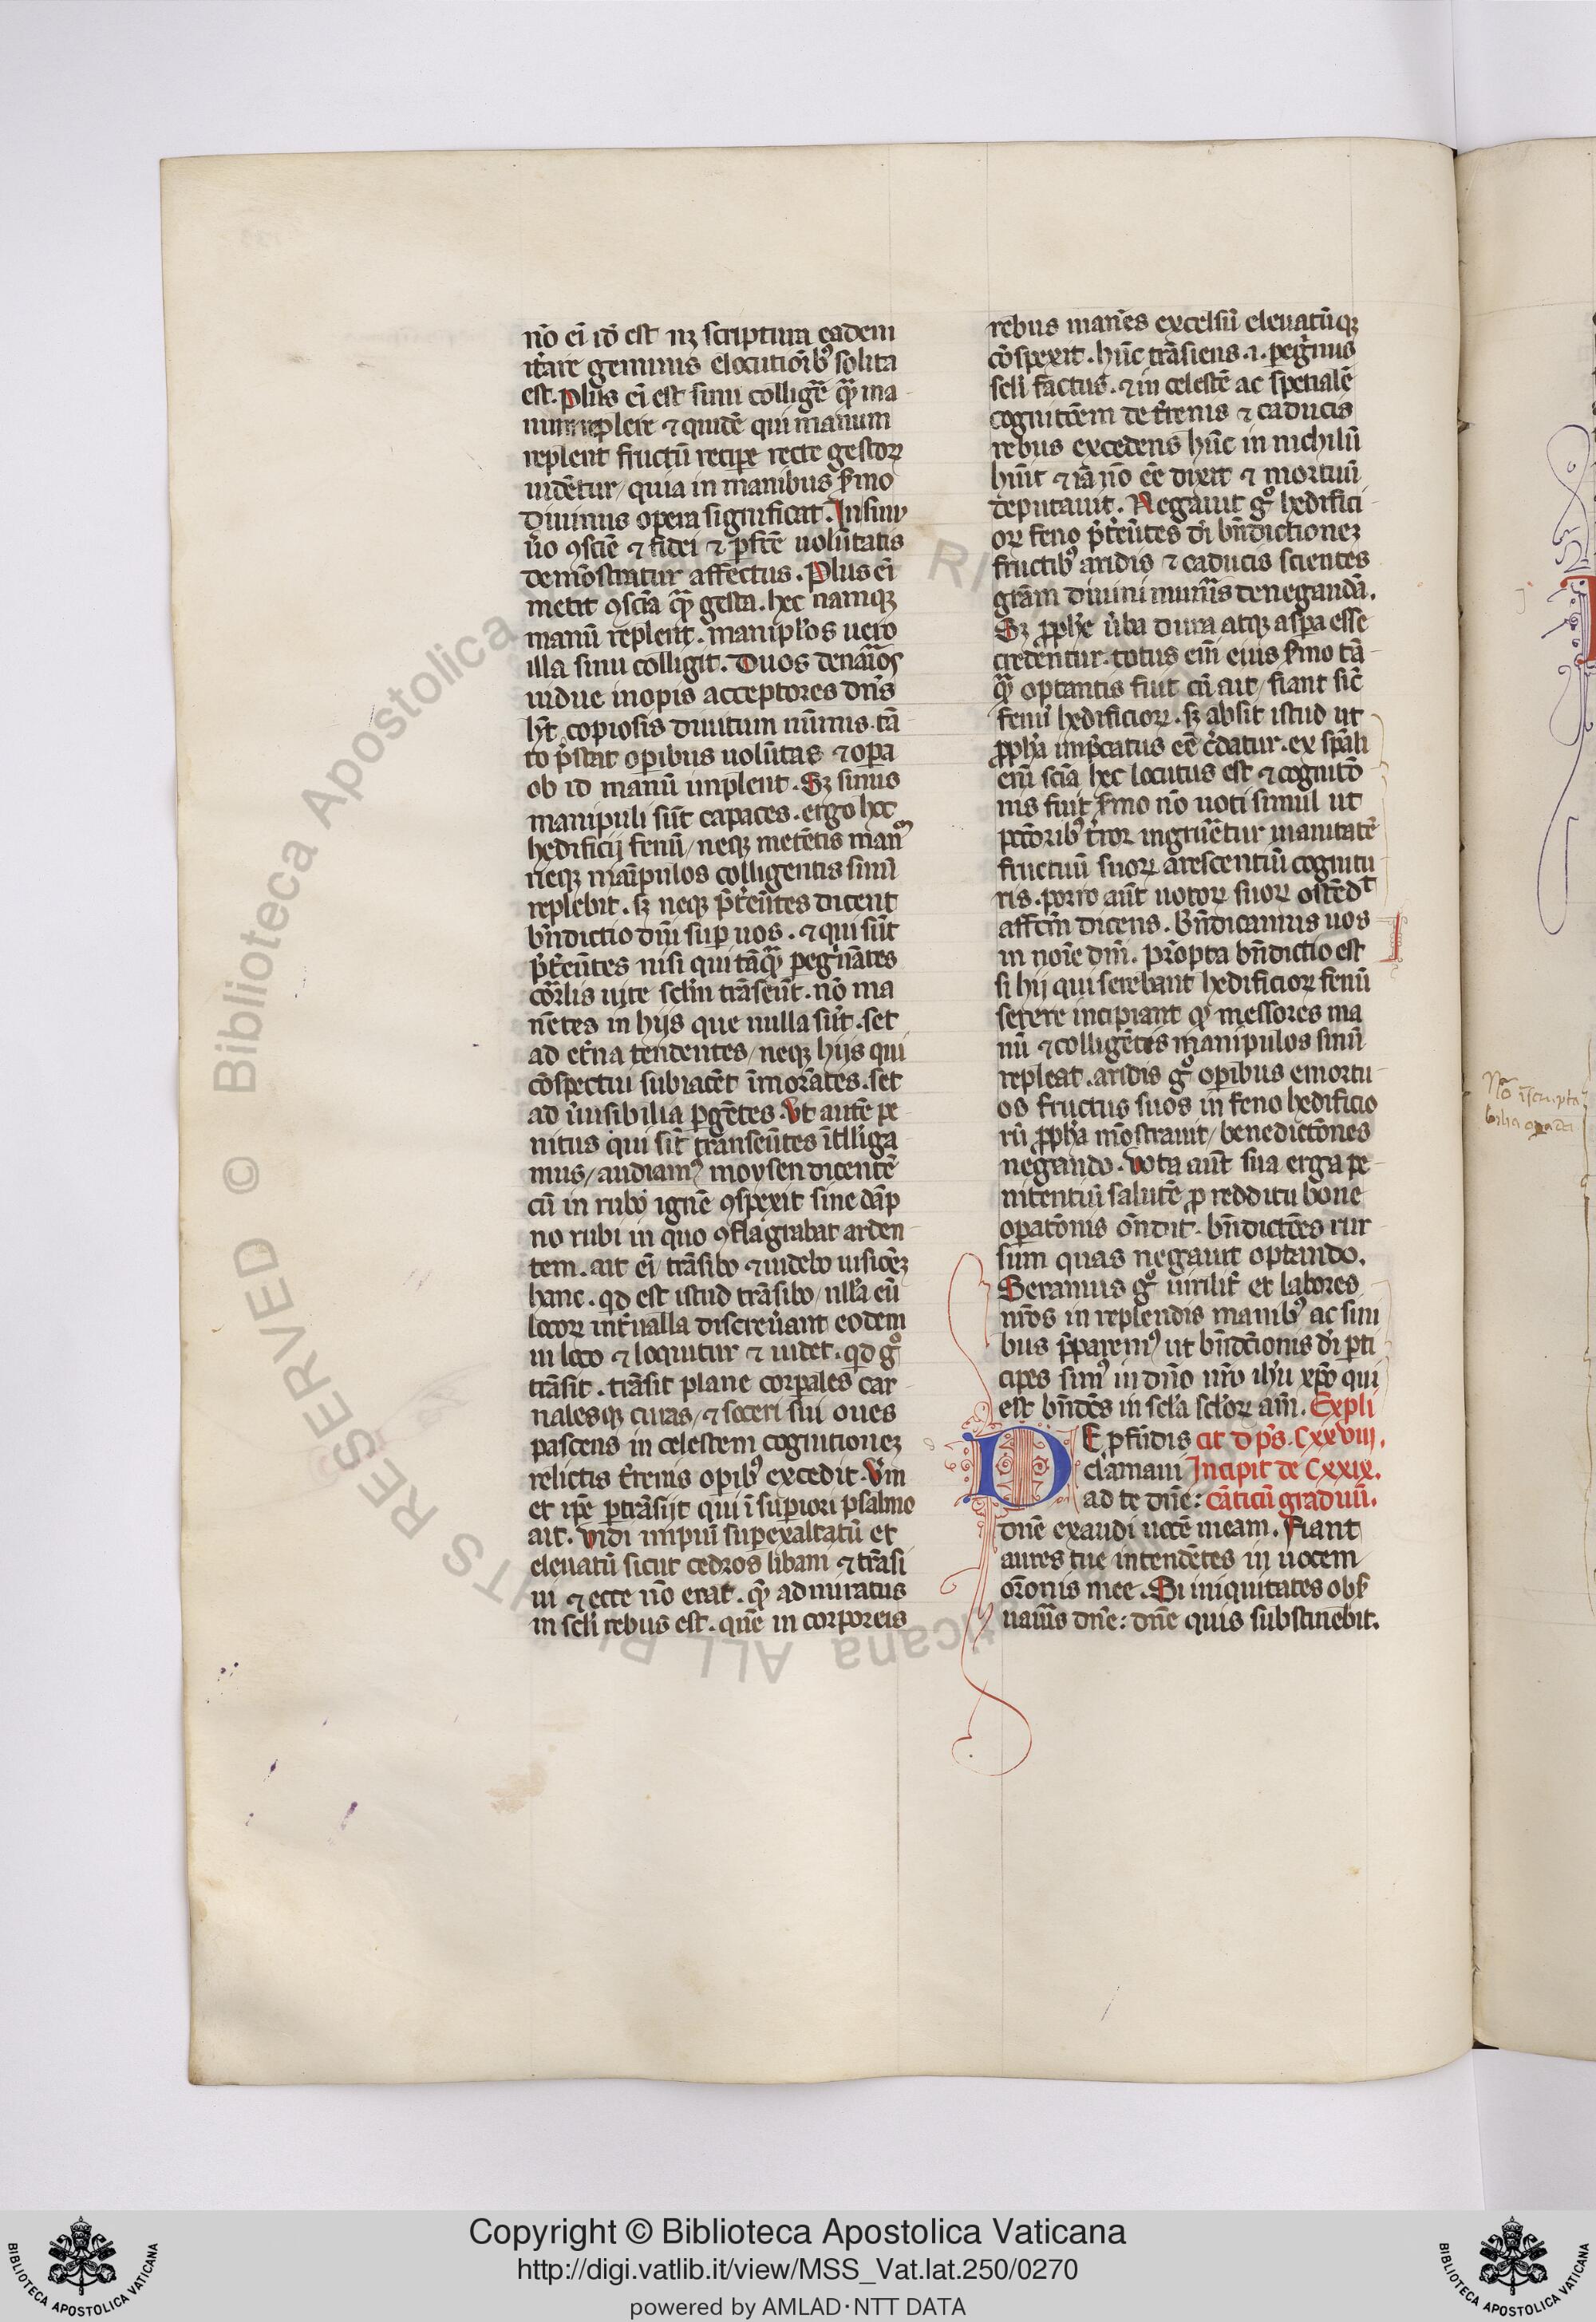 nō ei̅ id̅ est nꝫ scriptura eadem
it̅are geminis elocutiōibꝰ solita
est. Plus ei̅ est sinu collig̅e q̅ꝫ ma
num replere ⁊ quidē qui manum
replent fructū recipe̅ recte gestoꝝ
uidētur/ quia in manibus s̅mo
diuinus opera significat. In sinu
u̅o ꝯscie̅ ⁊ fidei ⁊ ꝑfce̅ uolūtatis
demōstratur affectus. Plus ei̅
metit ꝯsci̅a q̅ꝫ gesta. hec namqꝫ
manū replent. manipl̅os uero
illa sinu colligit. Duos denarios
uidue inopis acceptores dn̅s
ht̅ copiosis diuitum nūmis. tā
to p̅stat opibus uolūtas ⁊ opa
ob id manū inplent. Sꝫ sinus
manipuli sūt capaces. ergo hec
hedificij fenū/ neqꝫ metētis man̅
neqꝫ man̅ipulos colligentis sinū
replebit. sꝫ neqꝫ p̅t̅eūtes dicent
bn̅dictio dn̅i suꝑ uos. ⁊ qui sūt
p̅t̅eūtes nisi qui tāq̅ꝫ peg̅nātes
cōr̅lis uite scl̅m trāseūt. nō ma
nētes in hijs que nulla sūt. set
ad et̅na tendentes/ neqꝫ hijs qui
cōspectui subiacēt īmorātes. set
ad īuisibilia ꝑgētes. Vt autē pe
nitus qui sīt transeūtes ītll̅iga
mus/ audiamꝰ moysen dicentē
cū in rubo ignē ꝯspexit sine dāp
no rubi in quo ꝯflagrabat arden
tem. ait ei̅ trāsibo ⁊ uidebo uisioēꝫ
hanc. qd̅ est istud trāsibo/ nll̅a eū
locoꝝ int̅ualla discreuant eodem
in loco ⁊ loquitur ⁊ uidet. qd̅ gͦ
trāsit. trāsit plane corꝑales car
nalesqꝫ curas/ ⁊ soceri sui oues
pascens in celestem cognitioneꝫ
relictis t̅renis opibꝰ excedit. Vn̅
et ip̅e ꝑtrāsijt qui ī superiori psalmo
ait. Vidi impiū suꝑexaltatū et
eleuatū sicut cedros libani ⁊ trāsi
ui ⁊ ecce nō erat. q̅ꝫ admiratus
in scl̅i rebus est. quē in corporeis
rebus manēs excelsū eleuatūqꝫ
cōspexit. hūc trāsiens .i. peg̅nus
scl̅i factus. ⁊ in celestē ac spetialē
cognitōem de t̅renis ⁊ caducis
rebus excedens hūc in nichilū
hūit ⁊ iā nō ēe dixit ⁊ mortuū
deputauit. Negauit gͦ hedifici
oꝝ feno p̅t̅eūtes di̅ bn̅dictioneꝫ
fructibꝰ aridis ⁊ caducis scientes
gr̅am diuini mun̅is denegandā.
Sꝫ ꝓphe̅ u̅ba dura atqꝫ aspa esse
credentur. totus eni̅ eius s̅mo tā
q̅ꝫ optantis fiut cū ait/ fiant sic̅
fenū hedificioꝝ. sꝫ absit istud ut
ꝓpha̅ inp̅catus ēe c̅datur. ex spāli
eni̅ sci̅a hec locutus est ⁊ cognitō
nis fuit s̅mo nō uoti simul ut
pctōribꝰ t̅ror ingrūetur inanitatē
fructuū suoꝝ arescentiū cognitu
ris. porro aūt uotoꝝ suoꝝ ostēdᵗ
affctm̅ dicens. Bn̅dicamus uos
in noīe dn̅i. Prōpta bn̅dictio est
si hij qui serebant hedificioꝝ fenū
serere incipiant qꝫ messores ma
nū ⁊ colligētes manipulos sinū
repleat. aridis gͦ opibus emortu
os fructus suos in feno hedificio
rū ꝓpha̅ mōstrauit/ benedictōnes
negando. Vota aūt sua erga pe
nitentiū salutē ꝓ redditu bone
opatōnis on̅dit. bn̅dictōes rur
sum quas negauit optando.
Seramus gͦ uirilit̅ et labores
nr̅os in replendis manibꝰ ac sini
bus p̅paremꝰ ut bn̅dcōnis di̅ pti
cipes simꝰ in dn̅o nr̅o ihu̅ xp̅o qui
est bn̅dc̅s in scl̅a scl̅oꝝ am̅. Expli
DE ꝓfūdis cit d̅ ps̅. Cxxviii.
clamaui Incipit de Cxxix.
ad te dn̅e: cāticū graduū.
dn̅e exaudi uocē meam. Fiant
aures tue intendētes in uocem
or̅onis mee. Si iniquitates obs̅
uau̅is dn̅e: dn̅e quis substinebit.
Copyright © Biblioteca Apostolica Vaticana
http://digi.vatlib.it/view/MSS_Vat.lat.250/0270
powered by AMLAD·NTT DATA
BIBLIOTECA APOSTOLICA VATICANA
BIBLIOTECA APOSTOLICA VATICANA